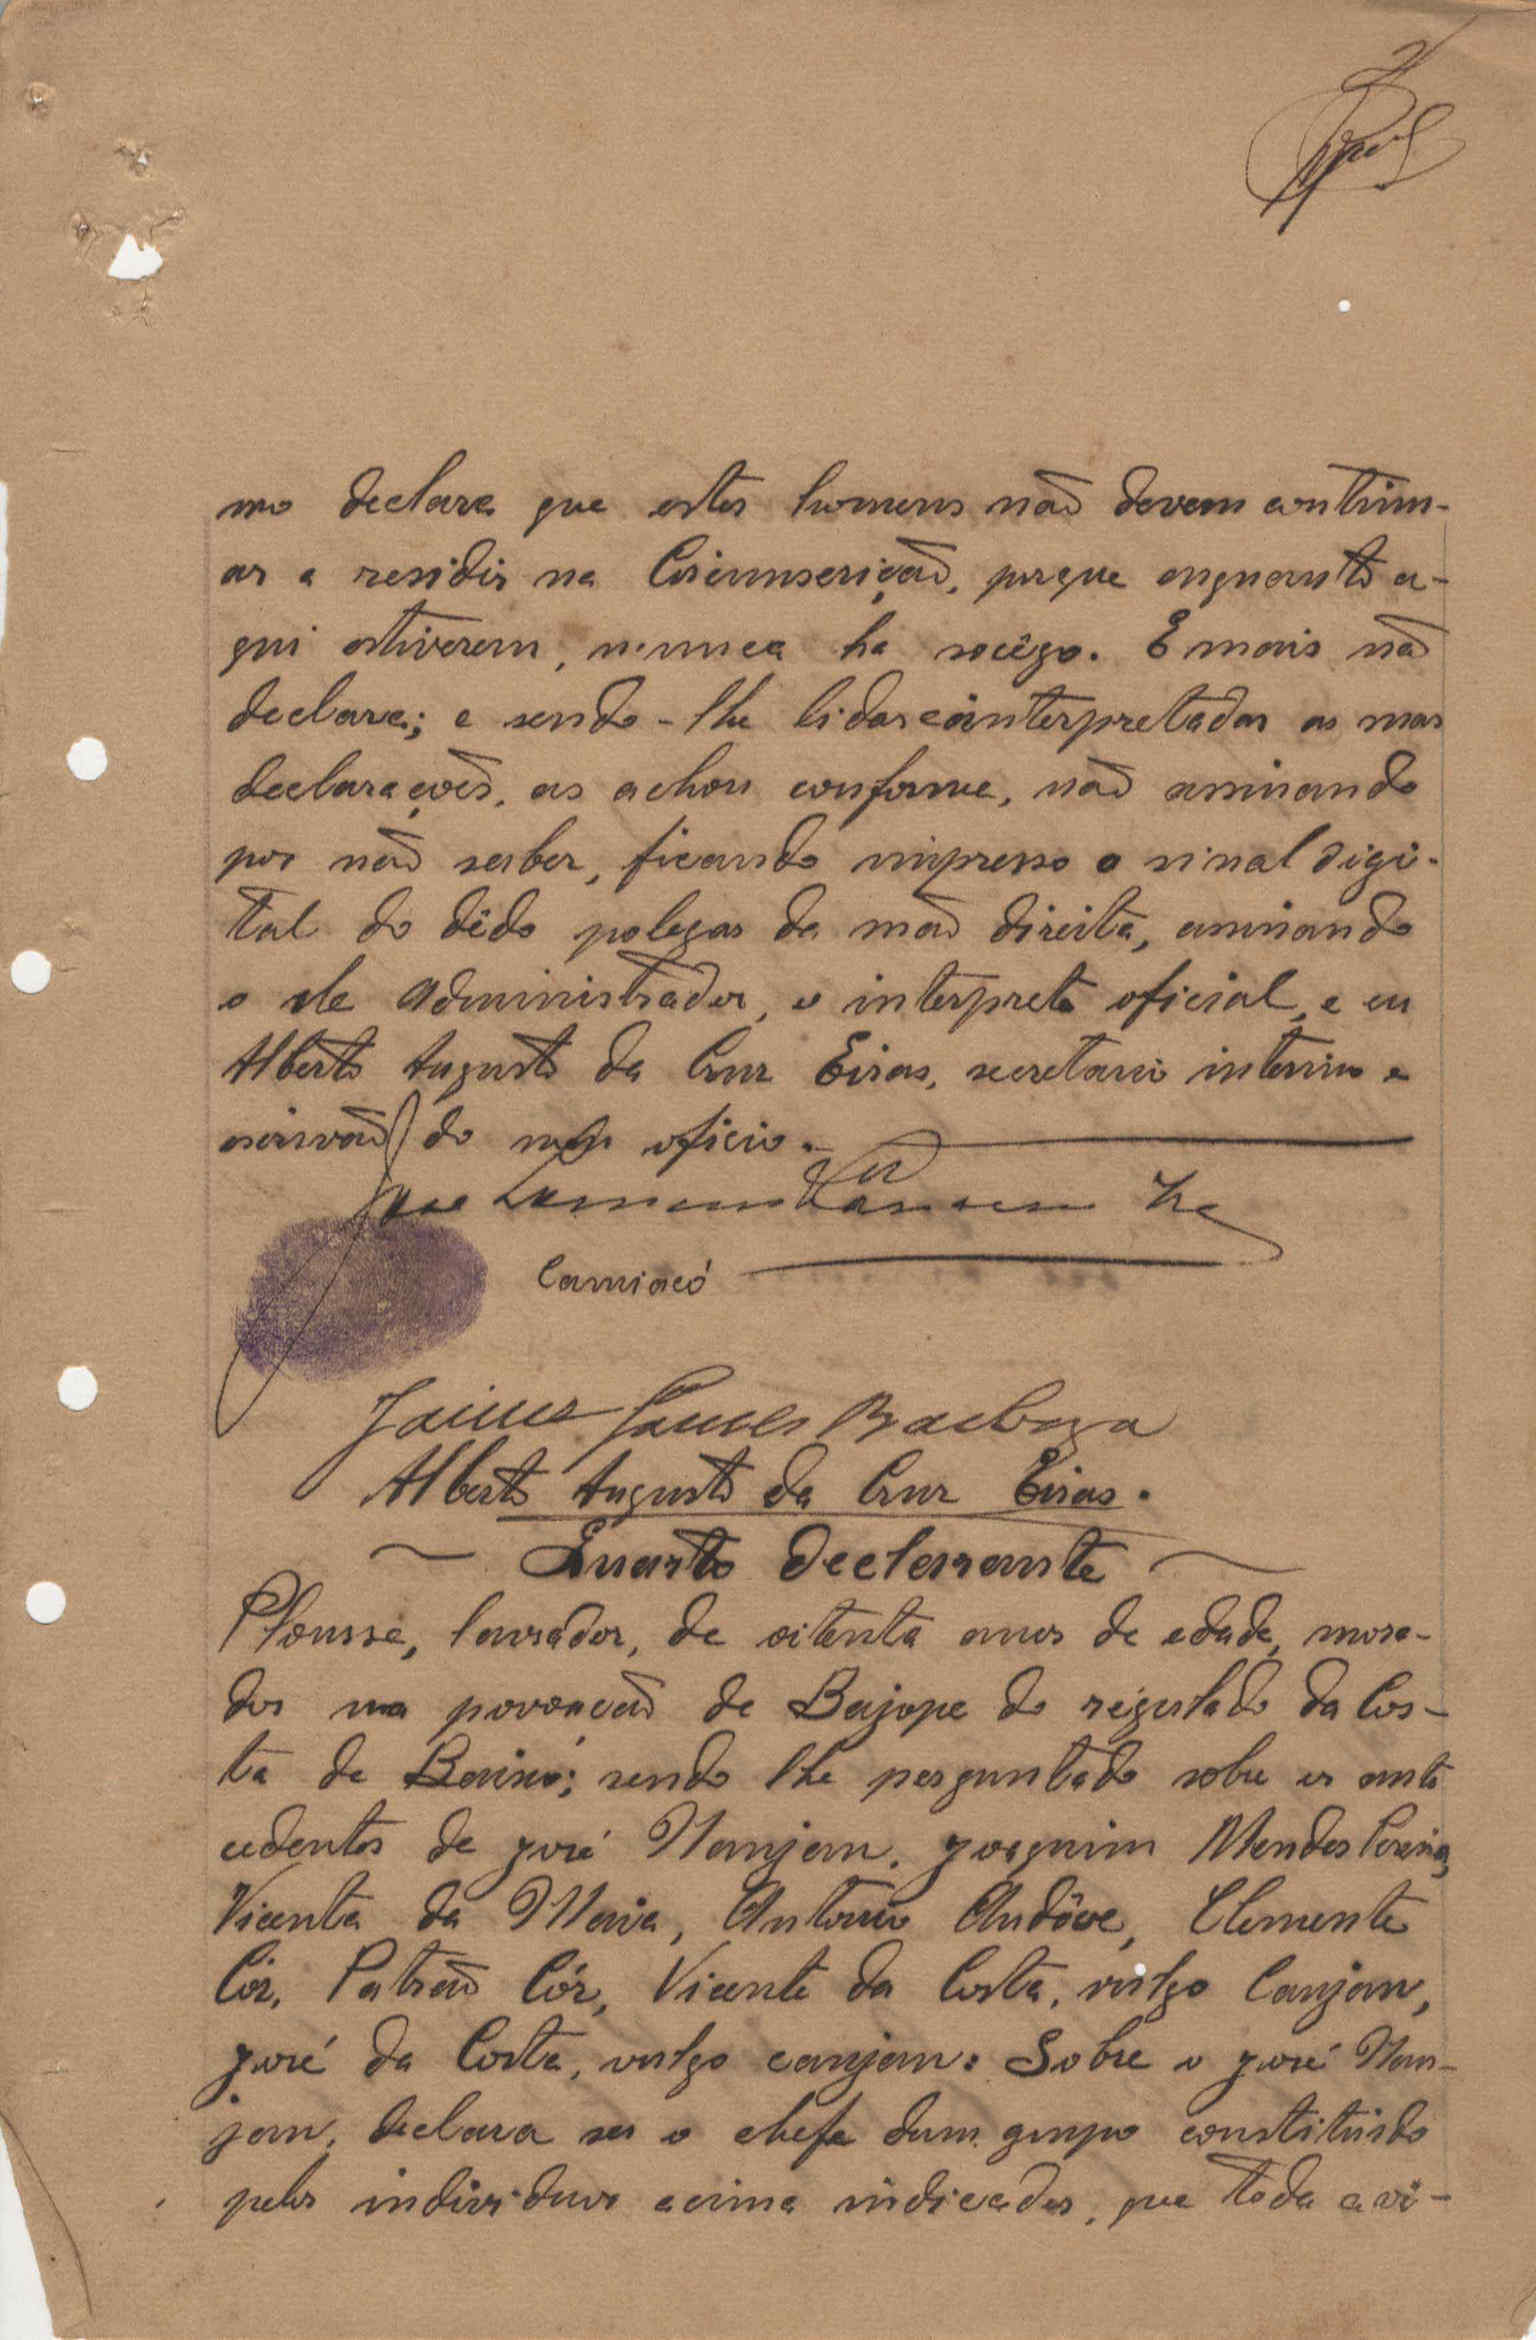 mo declara que estes homens não devem continu-
ar a residir na Circunscrição, porque enquanto a-
qui estiverem, nunca ha socêgo. E mais não
declara; e sendo-lhe lidas e interpretadas as suas
declarações, as achou conforme, não assinando
por não saber, ficando impresso o sinal digi-
tal do dêdo polegar da mão direita, assinando
o ele Administrador, o interprete oficial, e eu
Alberto Augusto da Cruz Eiras, secretario interino e
escrivão do meu oficio.
Camiacó
Jaime Gomes Barboza
Alberto Augusto da Cruz Eiras.
~ Quarto Declarante ~
Plousse, lavrador, de oitenta anos de edade, mora-
dor na povoação de Bajope do regulado da Cos-
ta de Baixo; sendo lhe perguntado sobre os ante
cedentes de José Nanjan, Joaquim Mendes Pereira,
Vicente da Maia, Antonio Andôve, Clemente
Cór, Patrão Cór, Vicente da Costa, vulgo Canjan,
José da Costa, vulgo canjan: Sobre o José Nan-
jan, declara ser o chefe dum grupo constituido
pelos individuos acima indicados, que toda a vi-